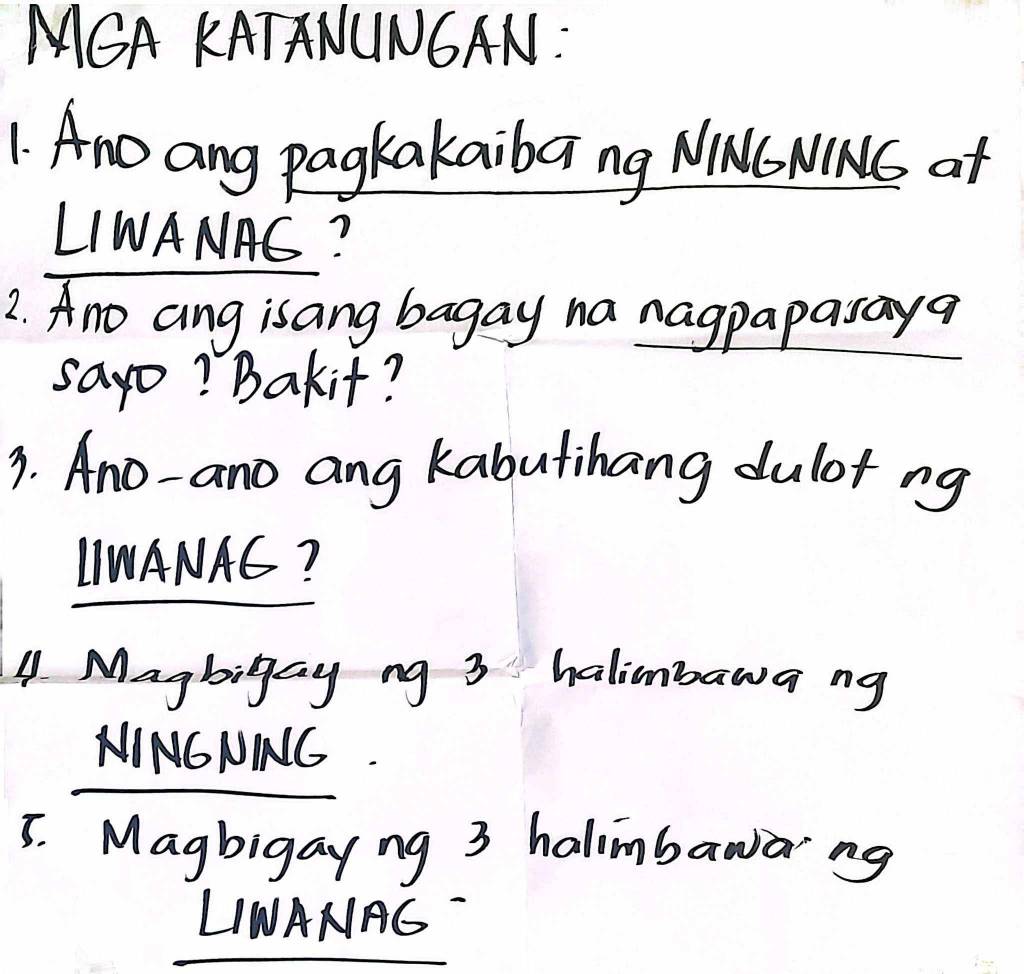 MGA KATANUNGAN:
1. Ano ang pagkakaiba ng NINGNING at
LIWANAG?
2. Ano ang isang bagay na nagpapasaya
sayo? Bakit?
3. Ano-ano ang kabutihang dulot ng
LIWANAG?
4. Magbigay ng 3 halimbawa ng
NINGNING.
5. Magbigay ng 3 halimbawa ng
LIWANAG